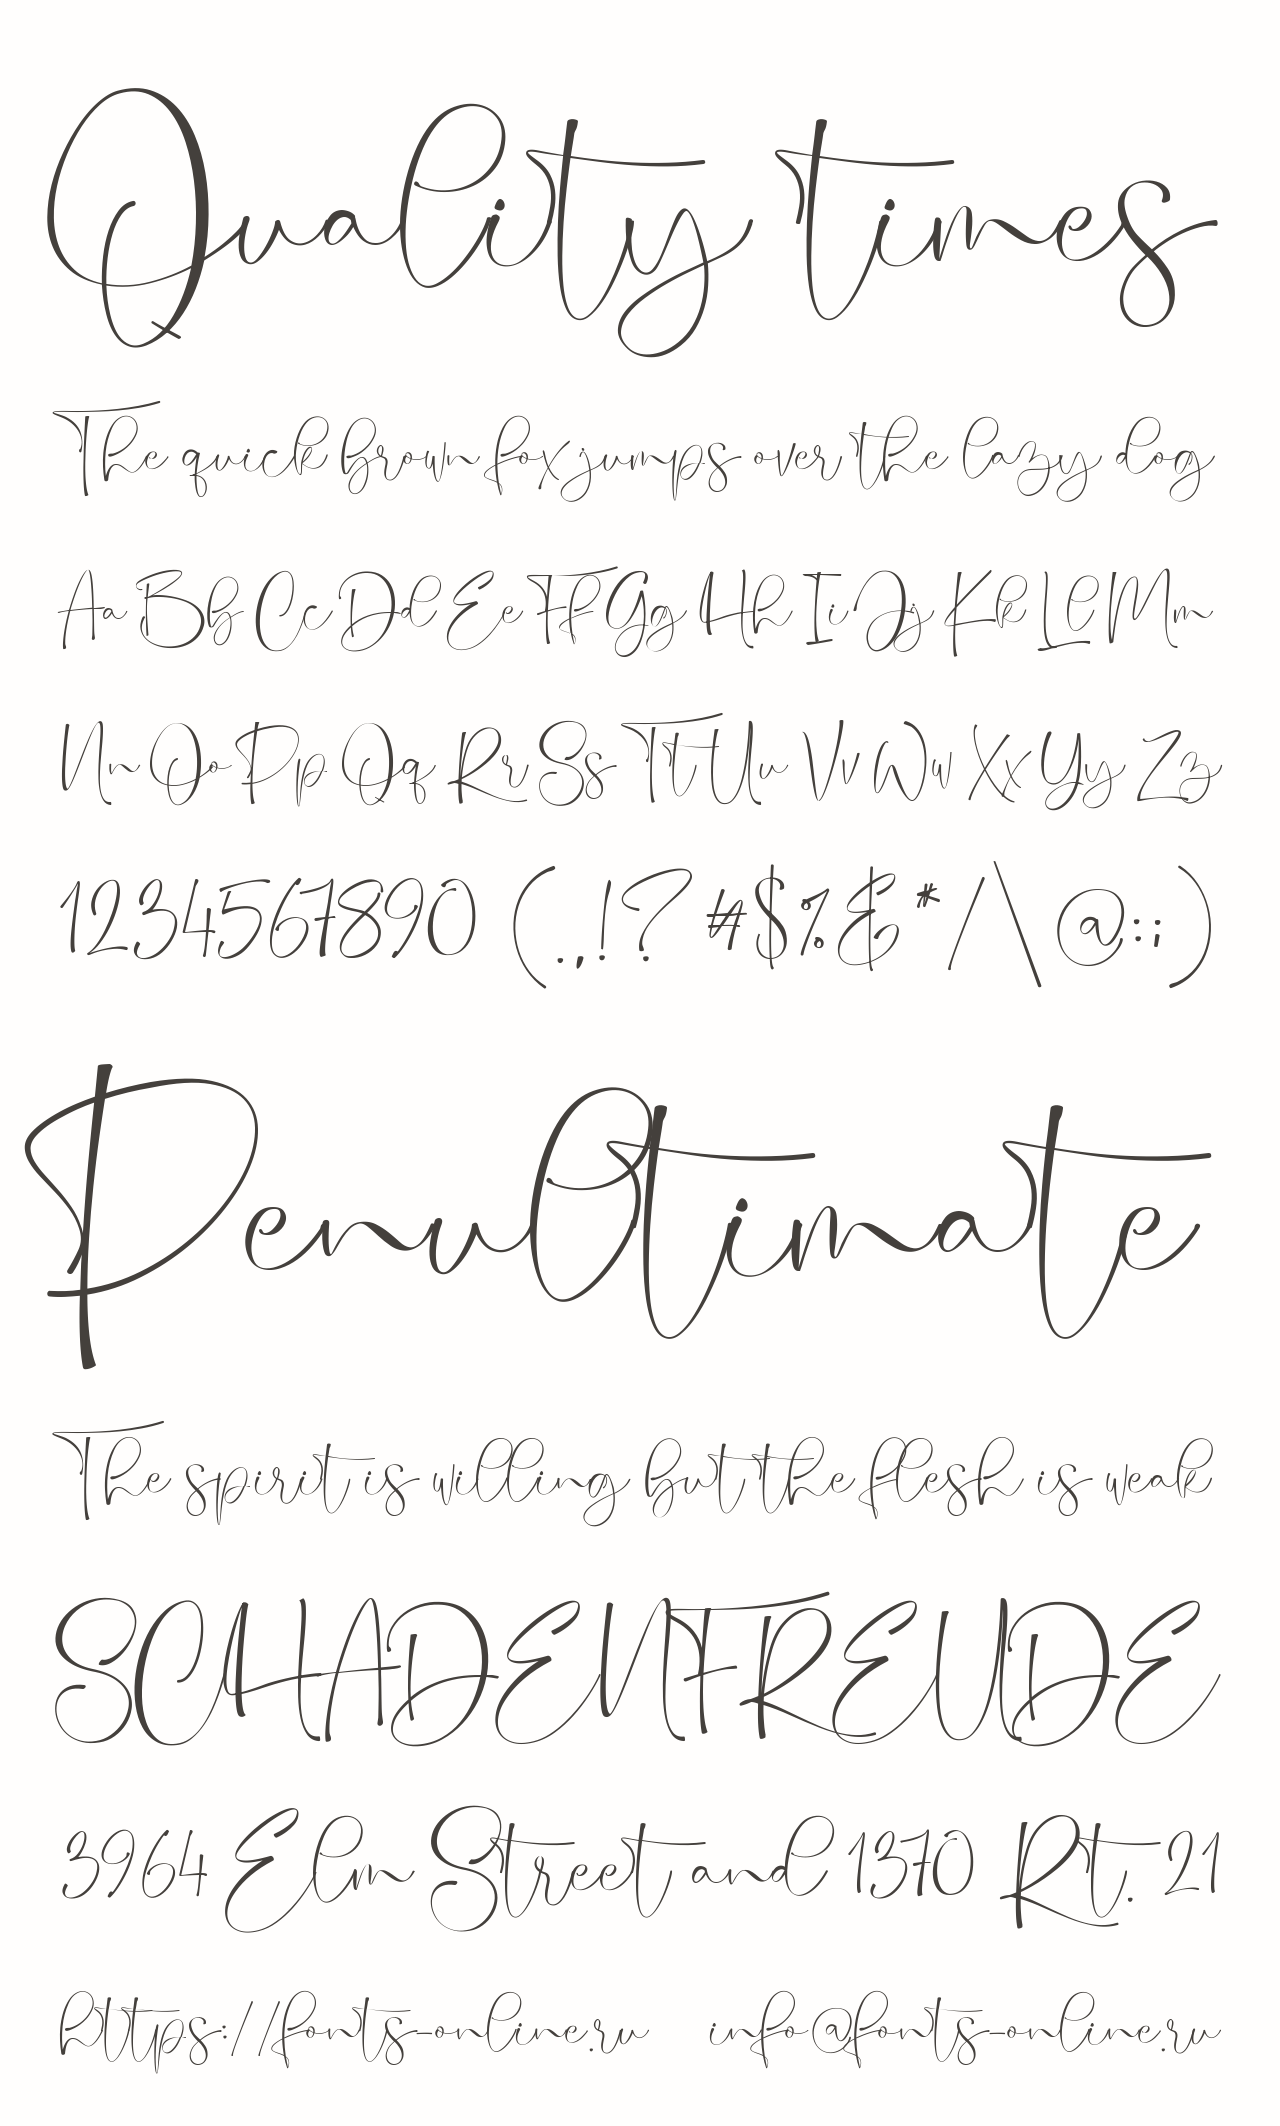 Quality times
The quick brown fox jumps over the lazy dog
Aa Bb Cc Dd Ee Ff Gg Hh Ii Jj Kk Ll Mm
Nn Oo Pp Qq Rr Ss Tt Uu Vv Ww Xx Yy Zz
1234567890 (.,!? #$%&*/\@:;)
Penultimate
The spirit is willing but the flesh is weak
SCHADENFREUDE
3964 Elm Street and 1370 Rt. 21
https://fonts-online.ru info@fonts-online.ru